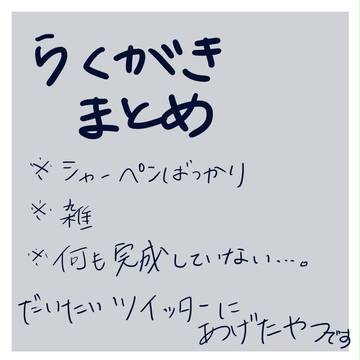 らくがき
まとめ
※シャーペンばっかり
※雑
※何も完成していない…。
だいたいツイッターに
あげたやつです